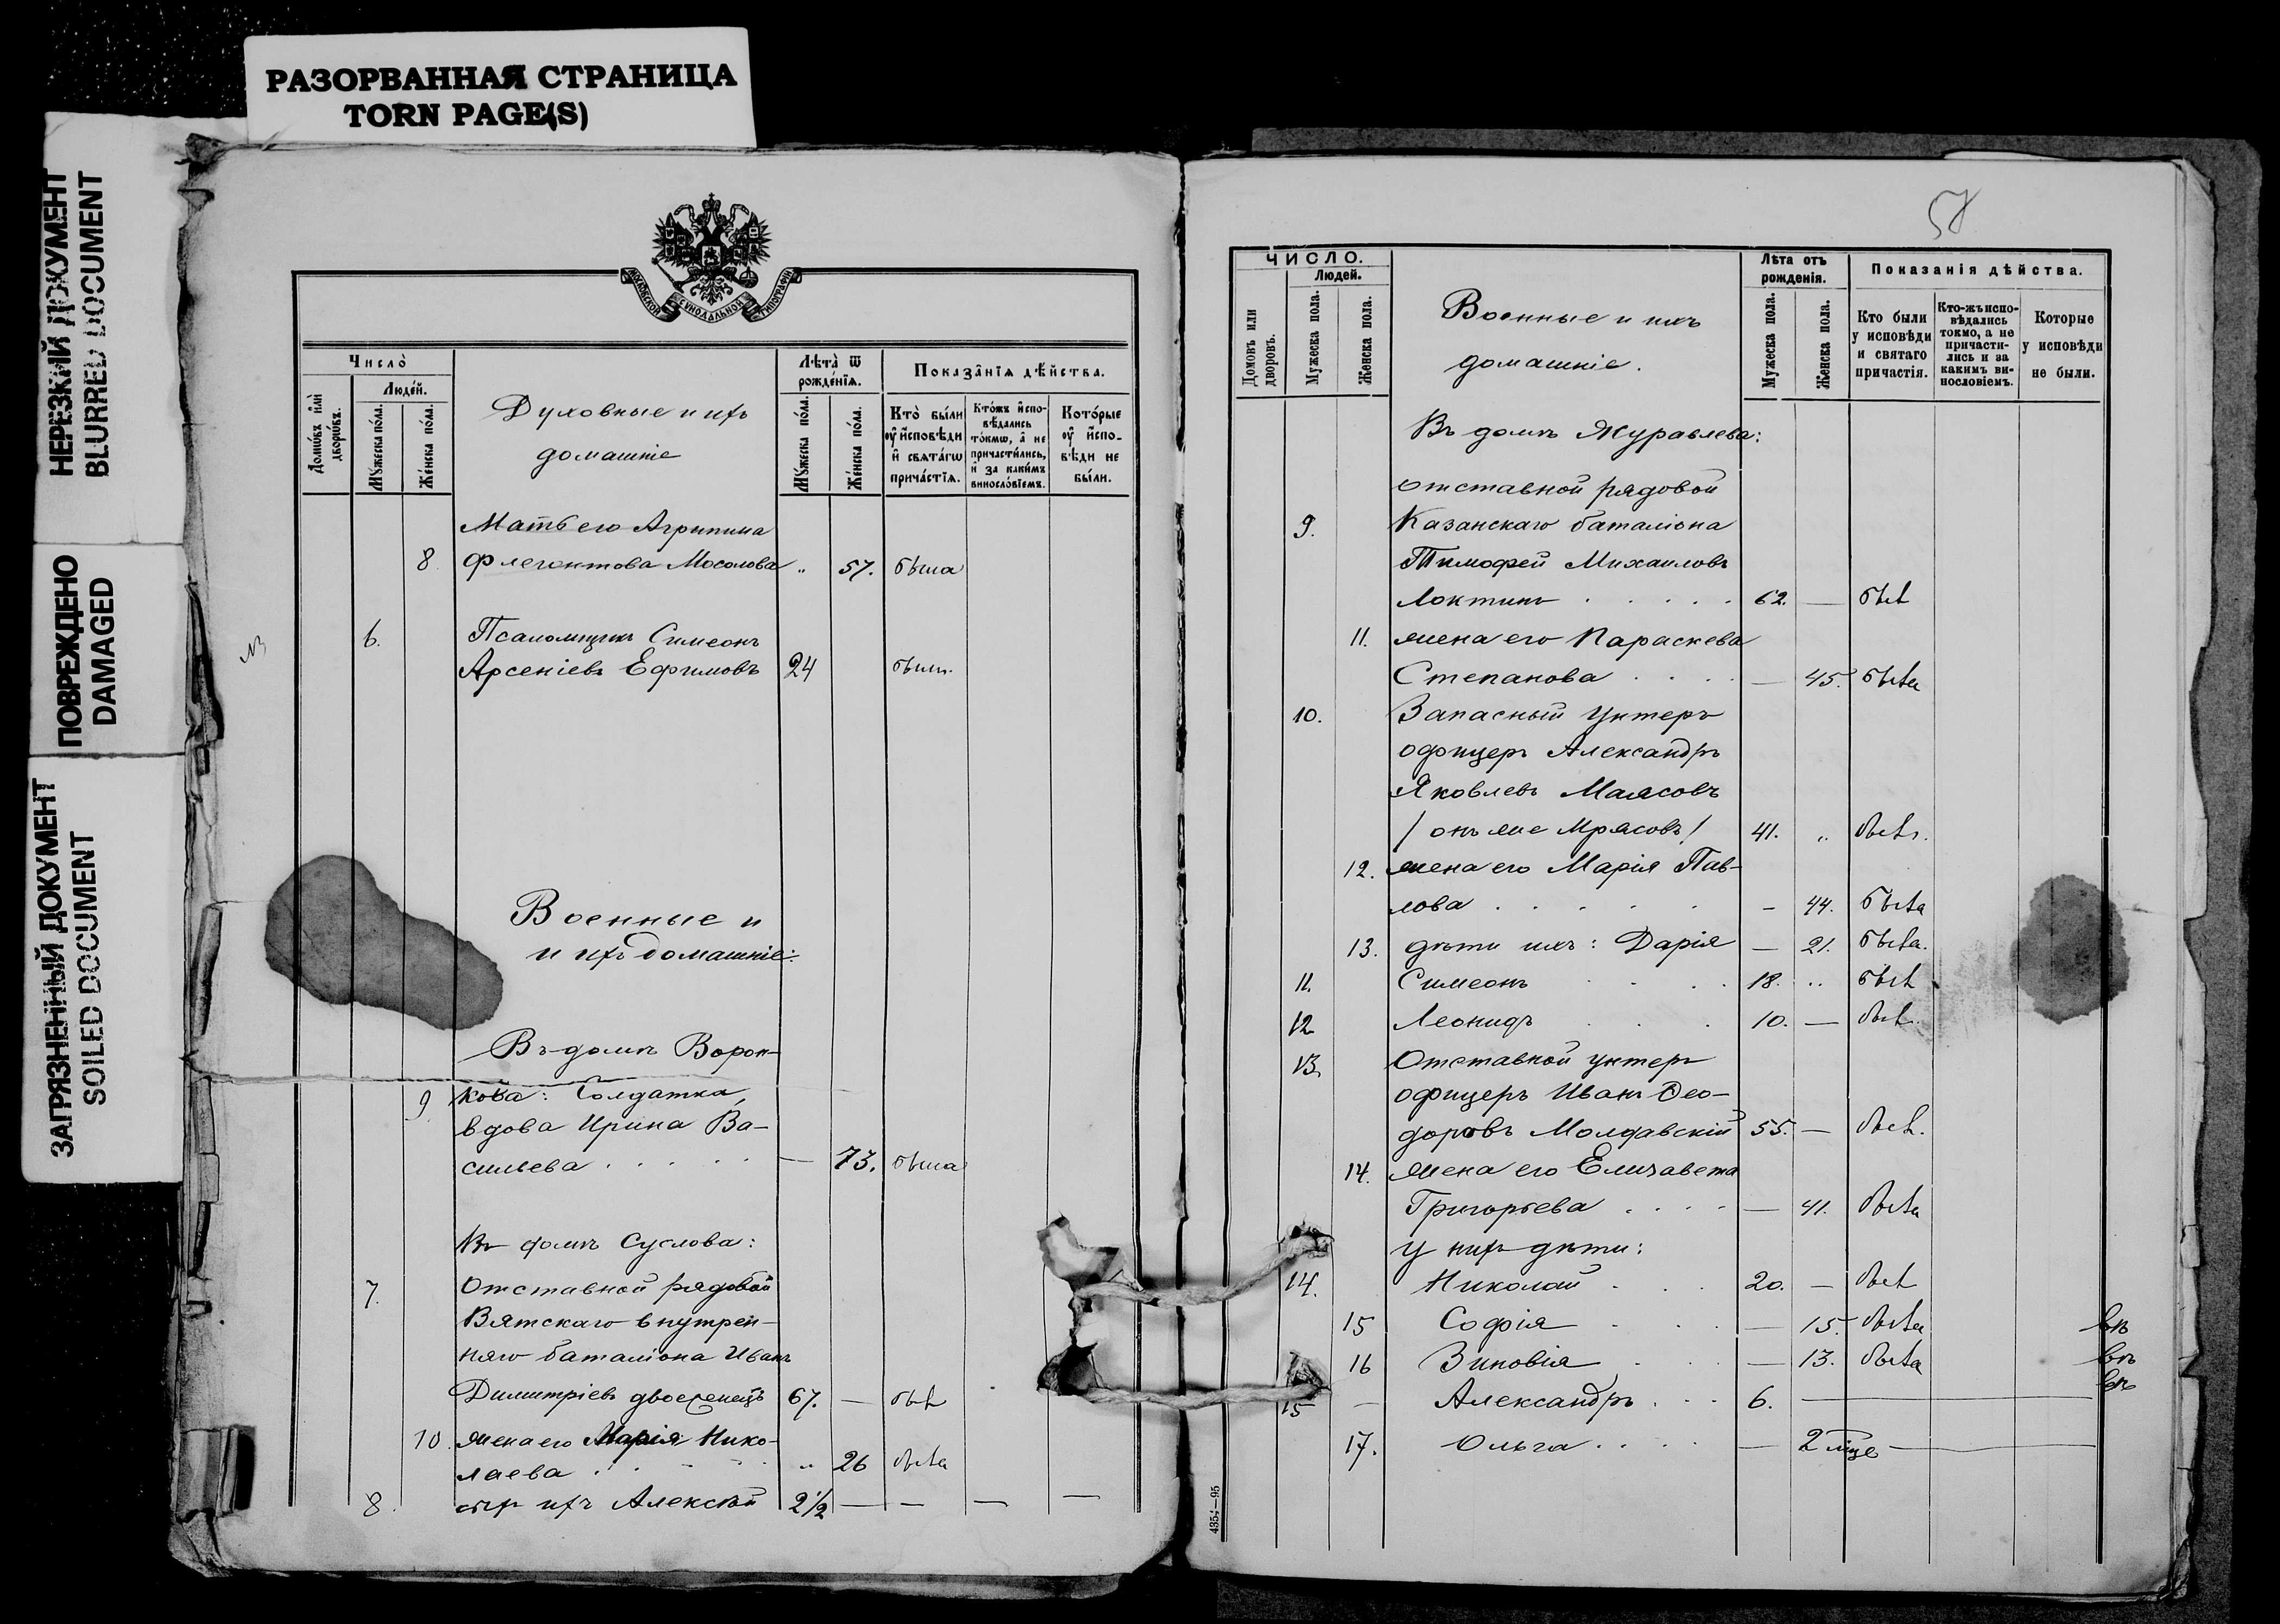 РАЗОРВАННАЯ СТРАНИЦА
TORN PAGE(S)
НЕРЕЗКИЙ ДОКУМЕНТ
BLURRED DOCUMENT
ПОВРЕЖДЕНО
DAMAGED
ЗАГРЯЗНЕННЫЙ ДОКУМЕНТ
SOILED DOCUMENT
МОСКОВСКОЙ СѴНОДАЛЬНОЙ ТИПОГРАФІИ
Число̀
Люде́й.
Домѡ́въ и҆лѝ дворѡ́въ.
Мꙋ́жеска по́ла.
Же́нска по́ла.
Духовные и ихъ
домашніе
Лѣ́та ѿ рожде́нїѧ.
Мꙋ́жеска по́ла.
Же́нска по́ла.
Показа̑нїѧ дѣ́йства.
Кто̀ бы́ли ᲂу҆ и҆сповѣди и҆ свѧта́гѡ прича́стїѧ.
Кто́жъ и҆сповѣдались то́кмѡ, а҆ не причасти́лись, и҆ за каки́мъ винословїемъ.
Кото́рые ᲂу҆ и҆сповѣди не бы́ли.
Мать его Агрипина
8. Флегонтова Мосолова „ 57. была
6. Псаломщикъ Симеонъ
Арсеніевъ Ефимовъ 24 былъ
Военные и
и ихъ домашніе:
Въ домѣ Ворон-
9 кова: Солдатка,
вдова Ирина Ва-
сильева . . . . . — 73. была
Въ домѣ Суслова:
7. Отставной рядовой
Вятскаго внутрен-
няго баталіона Иванъ
Димитріевъ 67. — былъ
10. жена его Марія Нико-
лаева . . . . „ 26 была
8. сынъ ихъ Алексѣй 2½ — — — —
ЧИСЛО.
Людей.
Домовъ или дворовъ.
Мужеска пола.
Женска пола.
Военные и ихъ
домашніе.
Лѣта отъ рожденія.
Мужеска пола.
Женска пола.
Показанія дѣйства.
Кто были у исповѣди и святаго причастія.
Кто-жъ исповѣдались токмо, а не причастились и за какимъ винословіемъ.
Которые у исповѣди не были.
Въ домѣ Журавлева:
отставной рядовой
9. Казанскаго баталіона
Тимофей Михаиловъ
Локтинъ . . . . . 62. — былъ
11. жена его Параскева
Степанова . . . . — 45. была
10. Запасный унтеръ
офицеръ Александръ
Яковлевъ Маясовъ
/ онъ же Мрясовъ / 41. „ былъ.
12. жена его Марія Пав-
лова . . . . . – 44. была
13. дѣти ихъ: Дарія — 21. была.
11. Симеонъ . . . . 18. „ былъ
12 Леонидъ . . . 10. — былъ.
13. Отставной унтеръ
офицеръ Иванъ Ѳео-
доровъ Молдавскій 55. — былъ.
14. жена его Елизавета
Григорьева . . . . — 41. была
у нихъ дѣти:
14. Николай . . . 20. — былъ
15 Софія . . . — 15. была
16 Зиновія . . . — 13. была
15 – Александръ . . . 6. —
17. Ольга . . . . — 2 мце —
4354—95